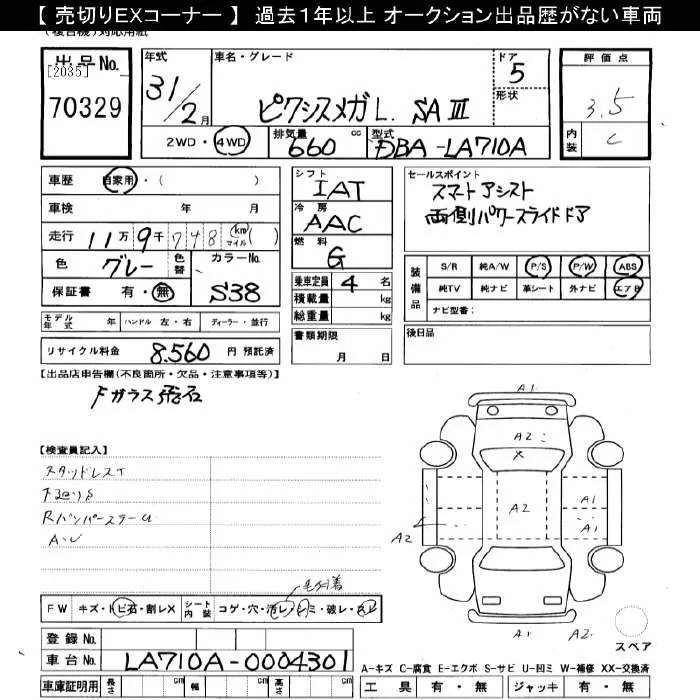 【 売切りEXコーナー 】 過去1年以上 オークション出品歴がない車両
出品No.
[2035]
70329
年式
31/2月
車名・グレード
ピクシスメガL. SAⅢ
ドア
5
形状
評価点
3.5
内装
C
2WD・4WD
排気量
660 cc
型式
DBA-LA710A
車歴 自家用・( )
車検 年 月
走行 11万9千748 (km マイル)( )
色 グレー 色替
カラーNo.
S38
保証書 有・無
シフト
IAT
冷房
AAC
燃料
G
乗車定員 4 名
積載量 kg
総重量 kg
セールスポイント
スマートアシスト
両側パワースライドドア
装備品
S/R 純A/W P/S P/W ABS
純TV 純ナビ 革シート 外ナビ エアB
ナビ型番:
モデル年式 年 ハンドル 左・右 ディーラー・並行
書類期限
月 日
後日品
リサイクル料金 8,560 円 預託済
【出品店申告欄(不良箇所・欠品・注意事項等)】
Fガラス飛石
【検査員記入】
スタッドレスT
下廻りS
A・U
FW キズ・トビ石・割レX シート内装 コゲ・穴・汚レ・シミ・破レ・スレ
登録No.
車台No. LA710A-0004301
車庫証明用 長さ cm 幅 cm 高さ cm
A1
A2
X
A2
A1
A1
A2
A1 A2
スペア
A-キズ C-腐食 E-エクボ S-サビ U-凹ミ W-補修 XX-交換済
工具 有・無 ジャッキ 有・無